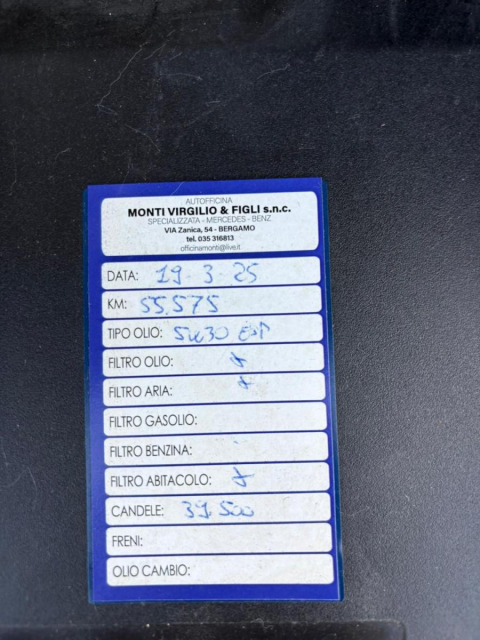 AUTOFFICINA
MONTI VIRGILIO & FIGLI s.n.c.
SPECIALIZZATA - MERCEDES - BENZ
VIA Zanica, 54 - BERGAMO
tel. 035 316813
officinamonti@live.it
DATA: 19-3-25
KM: 55.575
TIPO OLIO: 5W30
FILTRO OLIO:
FILTRO ARIA:
FILTRO GASOLIO:
FILTRO BENZINA:
FILTRO ABITACOLO:
CANDELE: 39.500
FRENI:
OLIO CAMBIO: